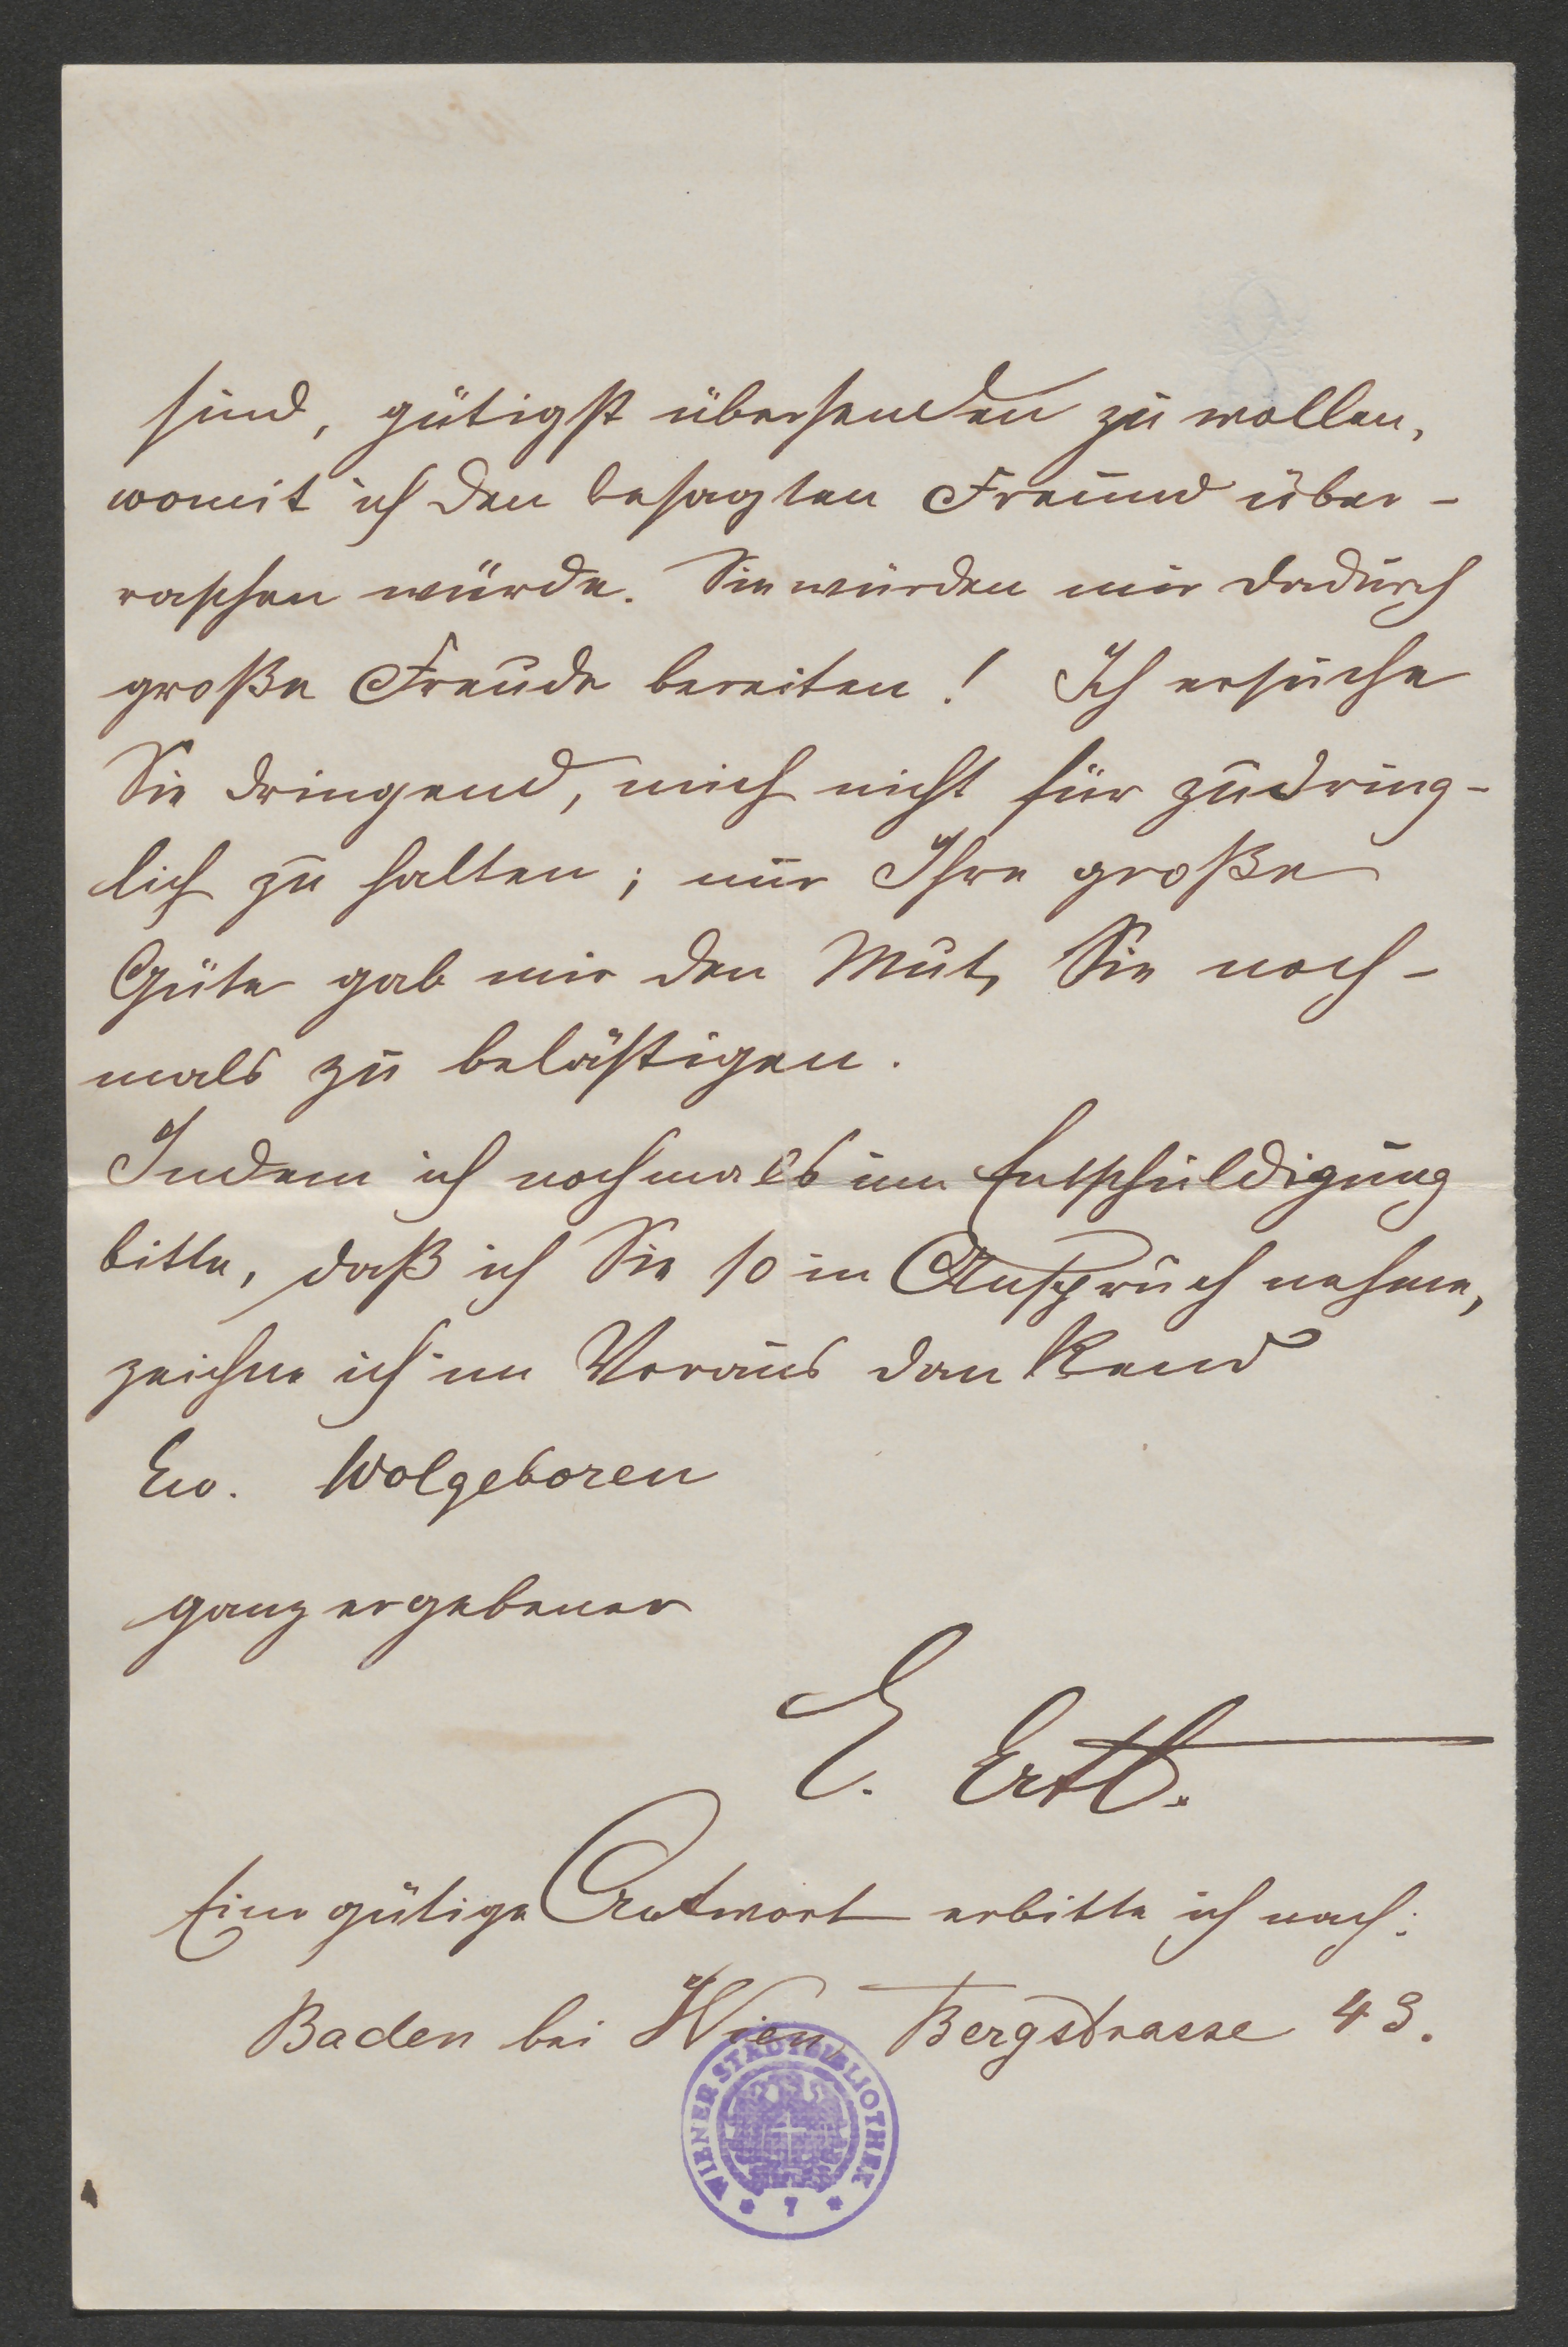 sind, gütigst übersenden zu wollen,
womit ich den besagten Freund über-
raschen würde. Sie würden mir dadurch
große Freude bereiten! Ich ersuche
Sie dringend, mich nicht für zudring-
lich zu halten; nur Ihre große
Güte gab mir den Mut, Sie noch-
mals zu belästigen.
Indem ich nochmals um Entschuldigung
bitte, daß ich Sie so in Anspruch nehme,
zeichne ich im Voraus dankend
Ew. Wolgeboren
ganz ergebener
E. Ertl.
Eine gütige Antwort erbitte ich nach:
Baden bei Wien, Bergstrasse 43.
WIENER STADTBIBLIOTHEK
* 7 *